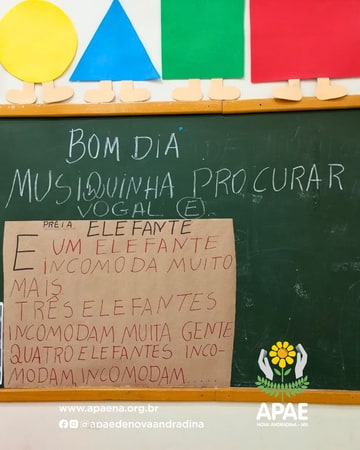 BOM DIA
MUSIQUINHA PROCURAR
VOGAL (E)
PRETA ELEFANTE
E UM ELEFANTE
INCOMODA MUITO
MAIS
TRÊS ELEFANTES
INCOMODAM MUITA GENTE
QUATRO ELEFANTES INCO-
MODAM, INCOMODAM.....
www.apaena.org.br
@apaedenovaandradina
APAE
NOVA ANDRADINA - MS